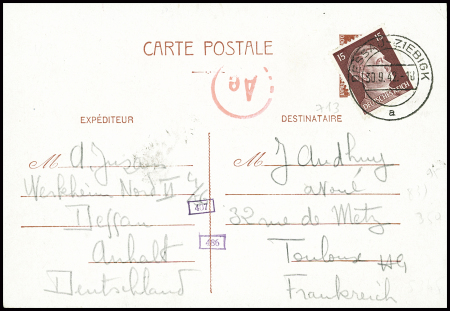 CARTE POSTALE
15 15
DEUTSCHES REICH
ZIEBIGK
30.9.42
a
Ae
713
EXPÉDITEUR
DESTINATAIRE
M A.
Werkheim Nord II
487
Dessau
Anhalt
Deutschland
M J Audhuy
avoué
32 rue de Metz
486
Toulouse HG
Frankreich